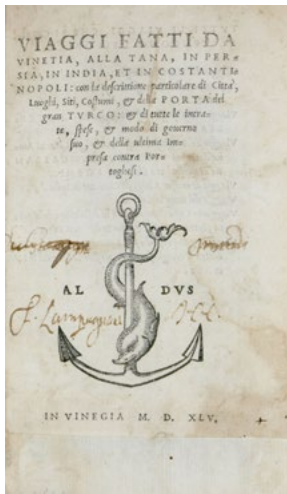 VIAGGI FATTI DA
VINETIA, ALLA TANA, IN PER-
SIA, IN INDIA, ET IN COSTANTI-
NOPOLI: con la descrittione particolare di Città,
Luoghi, Siti, Costumi, & della PORTA del
gran TVRCO: & di tutte le intra-
te, spese, & modo di gouerno
suo, & della ultima Im-
presa contra Por-
toghesi.
AL DVS
IN VINEGIA M. D. XLV.